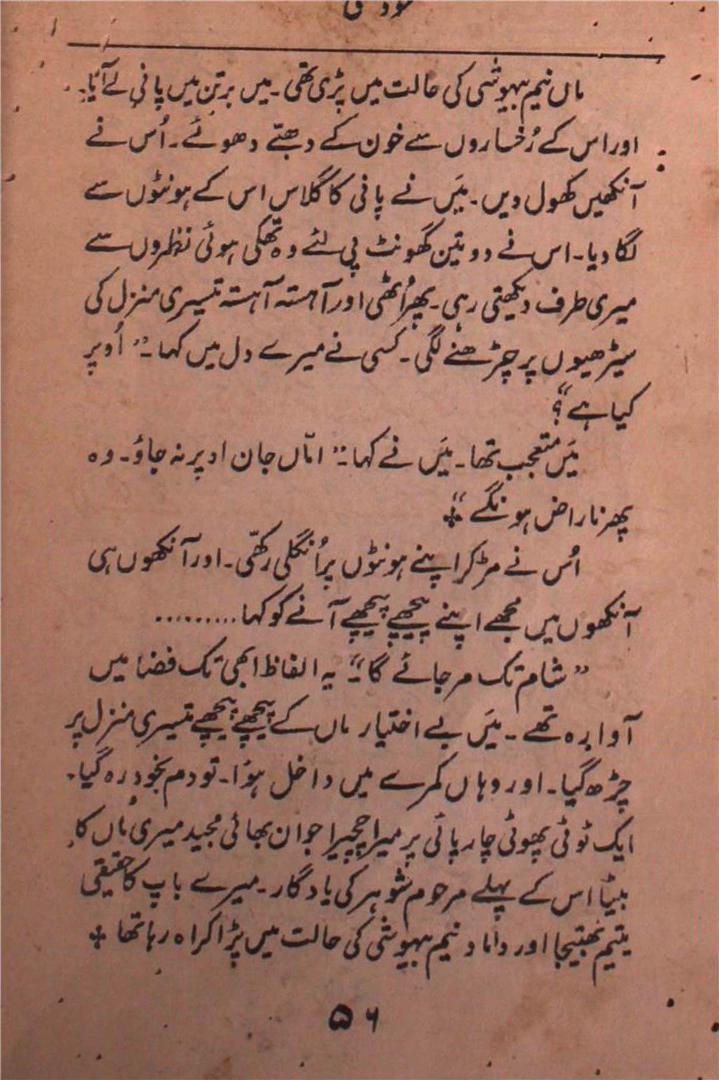 ماں نیم بیہوشی کی حالت میں پڑی تھی۔ میں برتن میں پانی لے آیا۔
اور اس کے رُخساروں سے خون کے دھبّے دھوئے۔ اُس نے
آنکھیں کھول دیں۔ مَیں نے پانی کا گلاس اس کے ہونٹوں سے
لگا دیا۔ اس نے دو تین گھونٹ پی لئے وہ تھکی ہوئی نظروں سے
میری طرف دیکھتی رہی۔ پھر اُٹھی اور آہستہ آہستہ تیسری منزل کی
سیڑھیوں پر چڑھنے لگی۔ کسی نے میرے دل میں کہا۔ ”اُوپر
کیا ہے“؟
مَیں متعجب تھا۔ مَیں نے کہا۔ ”امّاں جان اوپر نہ جاؤ۔ وہ
پھر ناراض ہونگے“
اُس نے مڑ کر اپنے ہونٹوں پر اُنگلی رکھّی۔ اور آنکھوں ہی
آنکھوں میں مجھے اپنے پیچھے پیچھے آنے کو کہا.........
”شام تک مر جائے گا“۔ یہ الفاظ ابھی تک فضا میں
آوارہ تھے۔ مَیں بے اختیار ماں کے پیچھے پیچھے تیسری منزل پر
چڑھ گیا۔ اور وہاں کمرے میں داخل ہوُا۔ تو دم بخود رہ گیا۔
ایک ٹوٹی پھوٹی چارپائی پر میرا چچیرا جوان بھائی مجید میری ماں کا
بیٹا اس کے پہلے مرحوم شوہر کی یادگار۔ میرے باپ کا حقیقی
یتیم بھتیجا اور داماد نیم بیہوشی کی حالت میں پڑا کراہ رہا تھا
۵۶